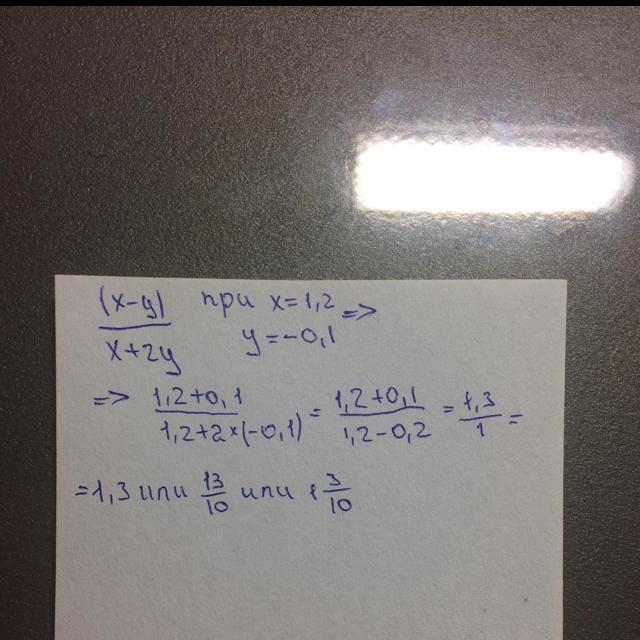 (x-y)/(x+2y) при x=1,2 y=-0,1 =>
=> (1,2+0,1)/(1,2+2×(-0,1)) = (1,2+0,1)/(1,2-0,2) = 1,3/1 =
=1,3 или 13/10 или 1 3/10